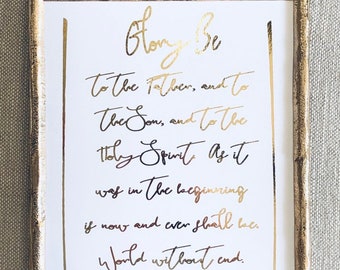 Glory Be
to the Father, and to
the Son, and to the
Holy Spirit. As it
was in the beginning
is now and ever shall be.
World without end.